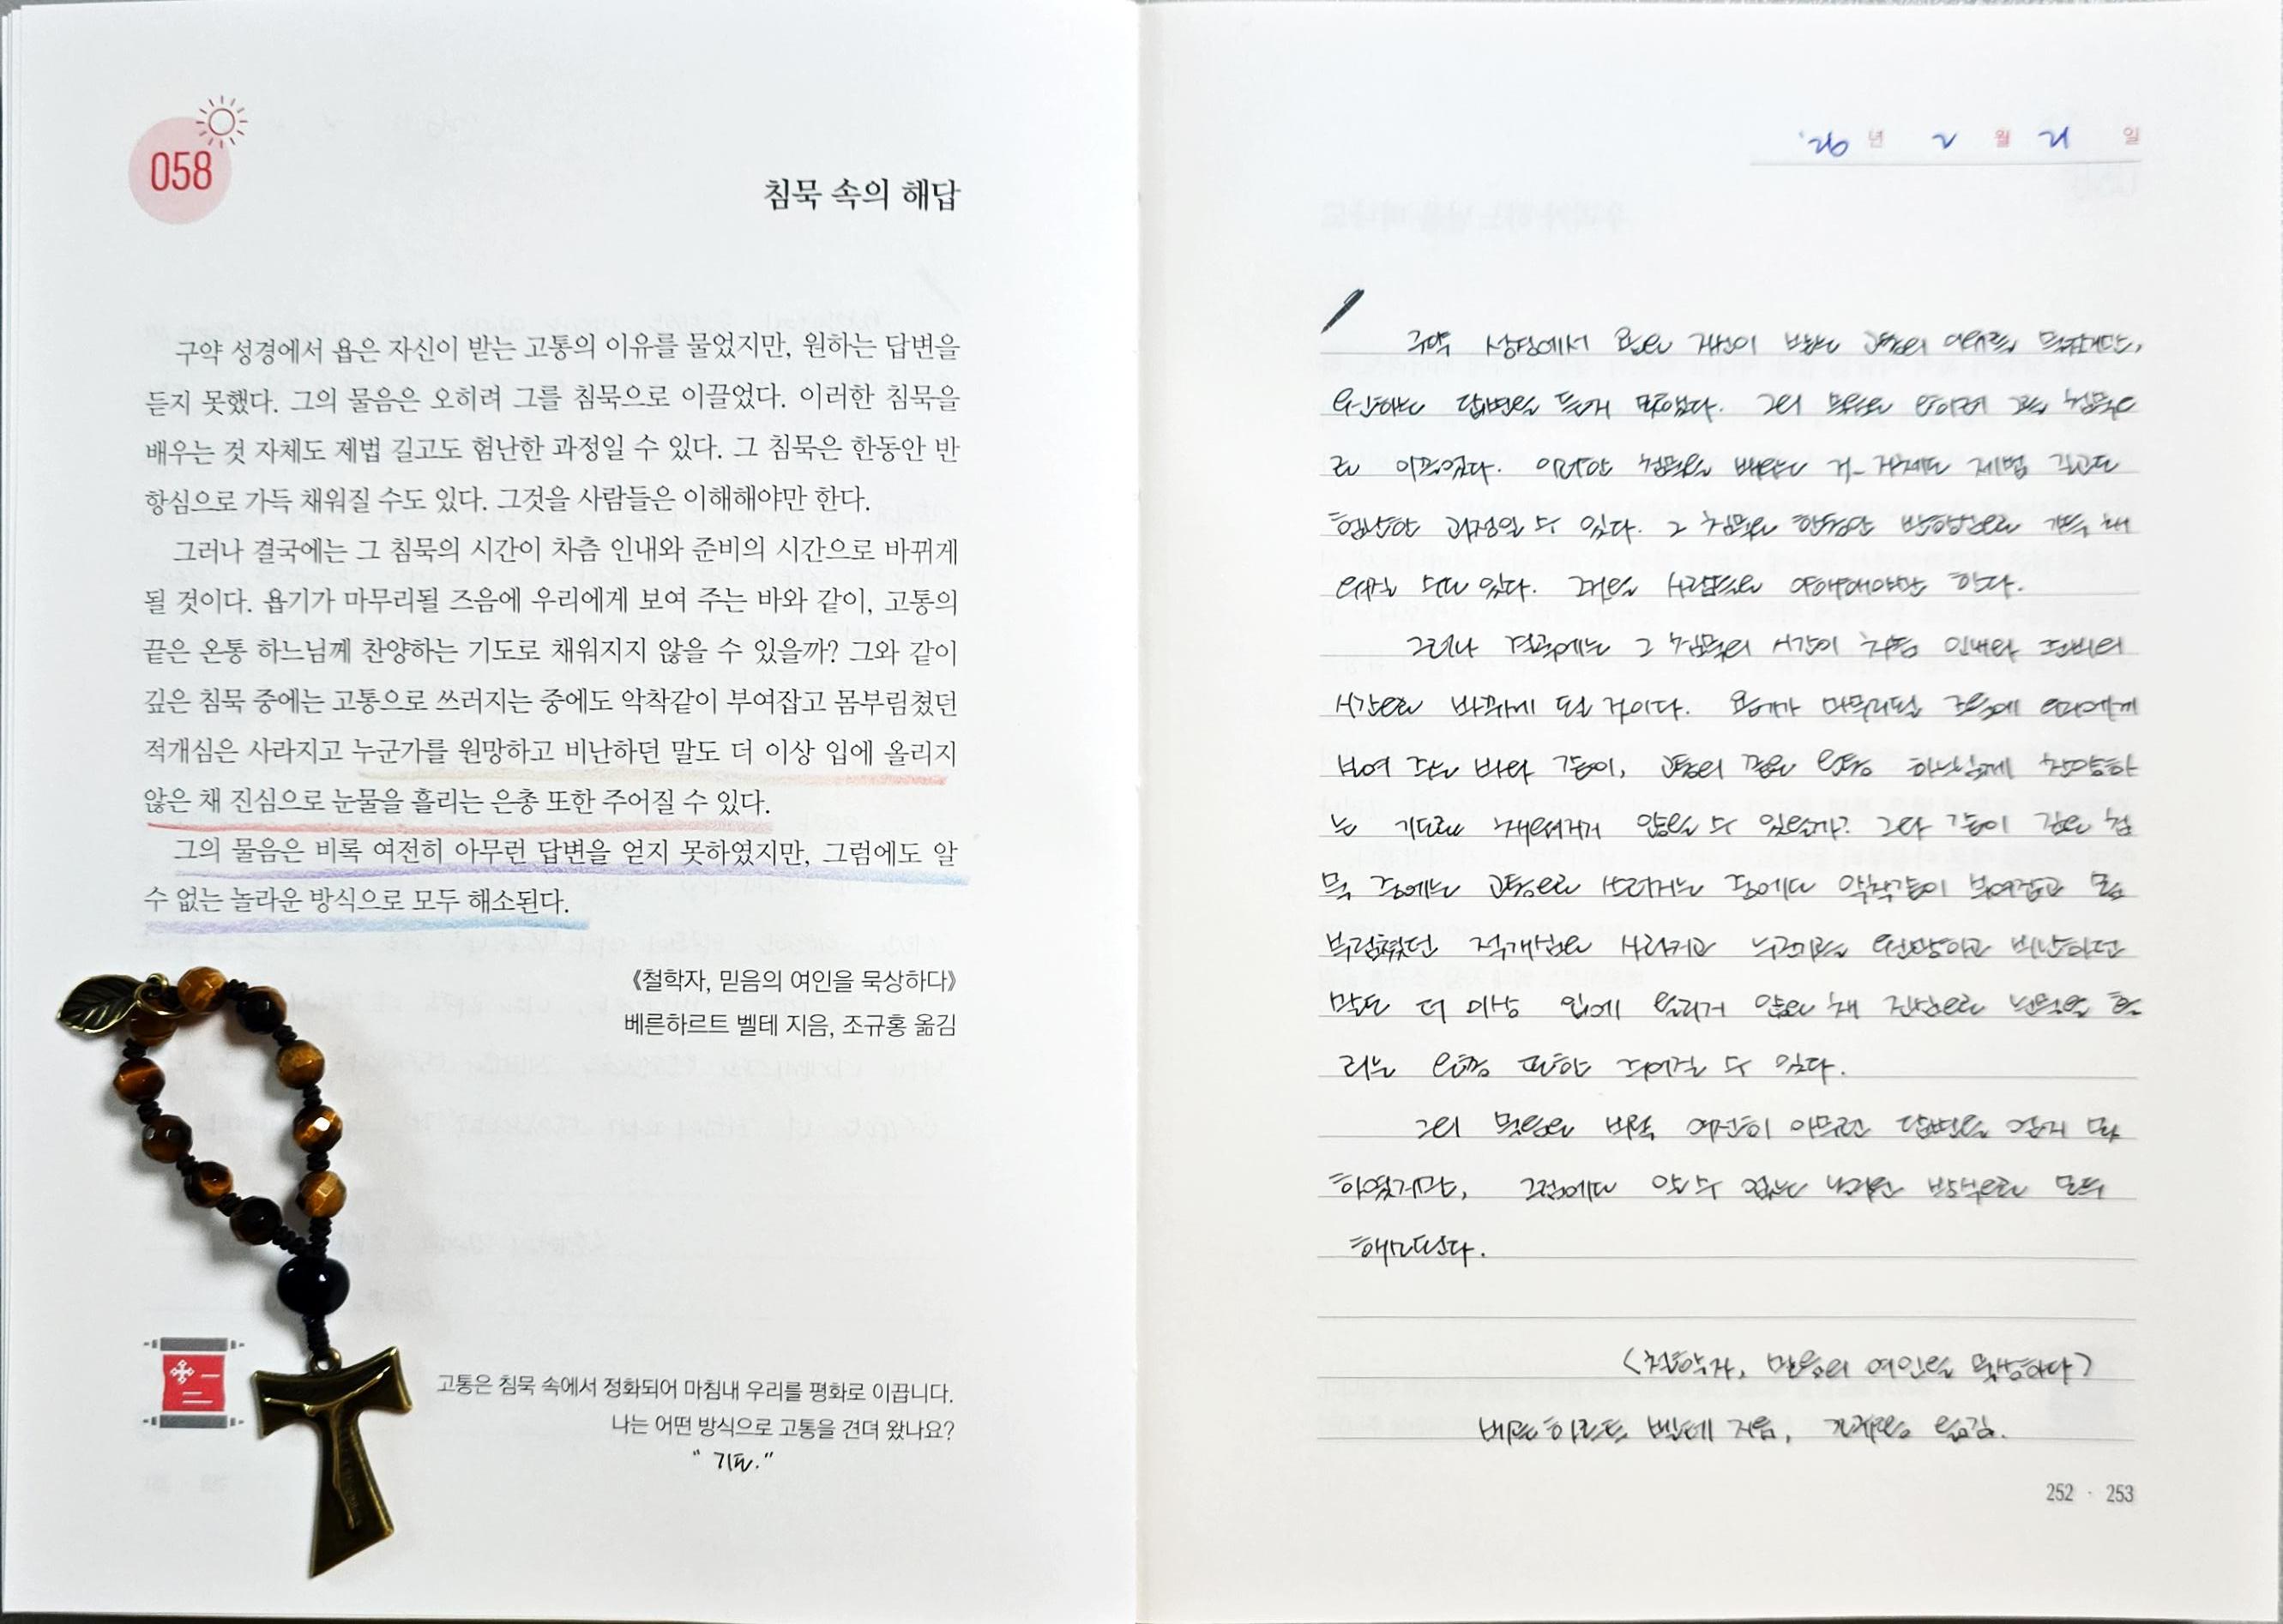 058
침묵 속의 해답
구약 성경에서 욥은 자신이 받는 고통의 이유를 물었지만, 원하는 답변을
듣지 못했다. 그의 물음은 오히려 그를 침묵으로 이끌었다. 이러한 침묵을
배우는 것 자체도 제법 길고도 험난한 과정일 수 있다. 그 침묵은 한동안 반
항심으로 가득 채워질 수도 있다. 그것을 사람들은 이해해야만 한다.
그러나 결국에는 그 침묵의 시간이 차츰 인내와 준비의 시간으로 바뀌게
될 것이다. 욥기가 마무리될 즈음에 우리에게 보여 주는 바와 같이, 고통의
끝은 온통 하느님께 찬양하는 기도로 채워지지 않을 수 있을까? 그와 같이
깊은 침묵 중에는 고통으로 쓰러지는 중에도 악착같이 부여잡고 몸부림쳤던
적개심은 사라지고 누군가를 원망하고 비난하던 말도 더 이상 입에 올리지
않은 채 진심으로 눈물을 흘리는 은총 또한 주어질 수 있다.
그의 물음은 비록 여전히 아무런 답변을 얻지 못하였지만, 그럼에도 알
수 없는 놀라운 방식으로 모두 해소된다.
《철학자, 믿음의 여인을 묵상하다》
베른하르트 벨테 지음, 조규홍 옮김
고통은 침묵 속에서 정화되어 마침내 우리를 평화로 이끕니다.
나는 어떤 방식으로 고통을 견뎌 왔나요?
"기도."
'26 년 2 월 21 일
구약 성경에서 욥은 자신이 받는 고통의 이유를 물었지만,
원하는 답변을 듣지 못했다. 그의 물음은 오히려 그를 침묵으
로 이끌었다. 이러한 침묵을 배우는 것 자체도 제법 길고도
험난한 과정일 수 있다. 그 침묵은 한동안 반항심으로 가득 채
워질 수도 있다. 그것을 사람들은 이해해야만 한다.
그러나 결국에는 그 침묵의 시간이 차츰 인내와 준비의
시간으로 바뀌게 될 것이다. 욥기가 마무리될 즈음에 우리에게
보여 주는 바와 같이, 고통의 끝은 온통 하느님께 찬양하
는 기도로 채워지지 않을 수 있을까? 그와 같이 깊은 침
묵 중에는 고통으로 쓰러지는 중에도 악착같이 부여잡고 몸
부림쳤던 적개심은 사라지고 누군가를 원망하고 비난하던
말도 더 이상 입에 올리지 않은 채 진심으로 눈물을 흘
리는 은총 또한 주어질 수 있다.
그의 물음은 비록 여전히 아무런 답변을 얻지 못
하였지만, 그럼에도 알 수 없는 놀라운 방식으로 모두
해소된다.
<철학자, 믿음의 여인을 묵상하다>
베른하르트 벨테 지음, 조규홍 옮김.
252 · 253